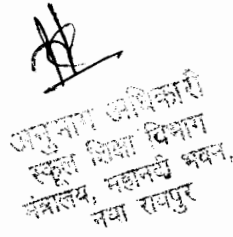 अनुभाग अधिकारी
स्कूल शिक्षा विभाग
मंत्रालय, महानदी भवन,
नवा रायपुर